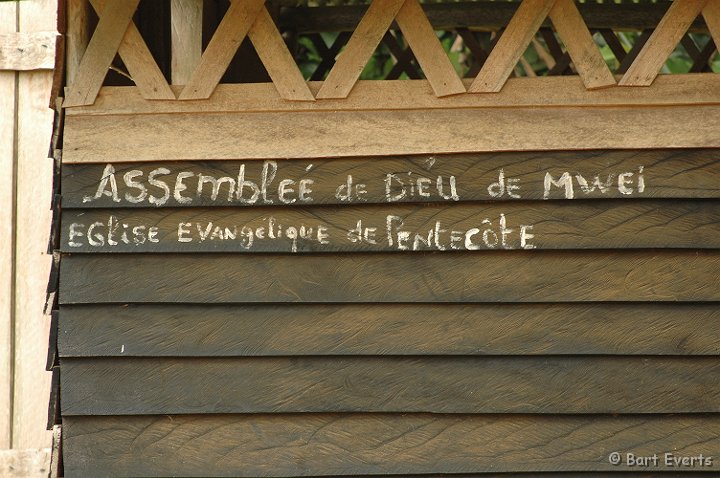 Assembleé de Diéu de Mwei
Église Evangélique de Pentecôte
© Bart Everts